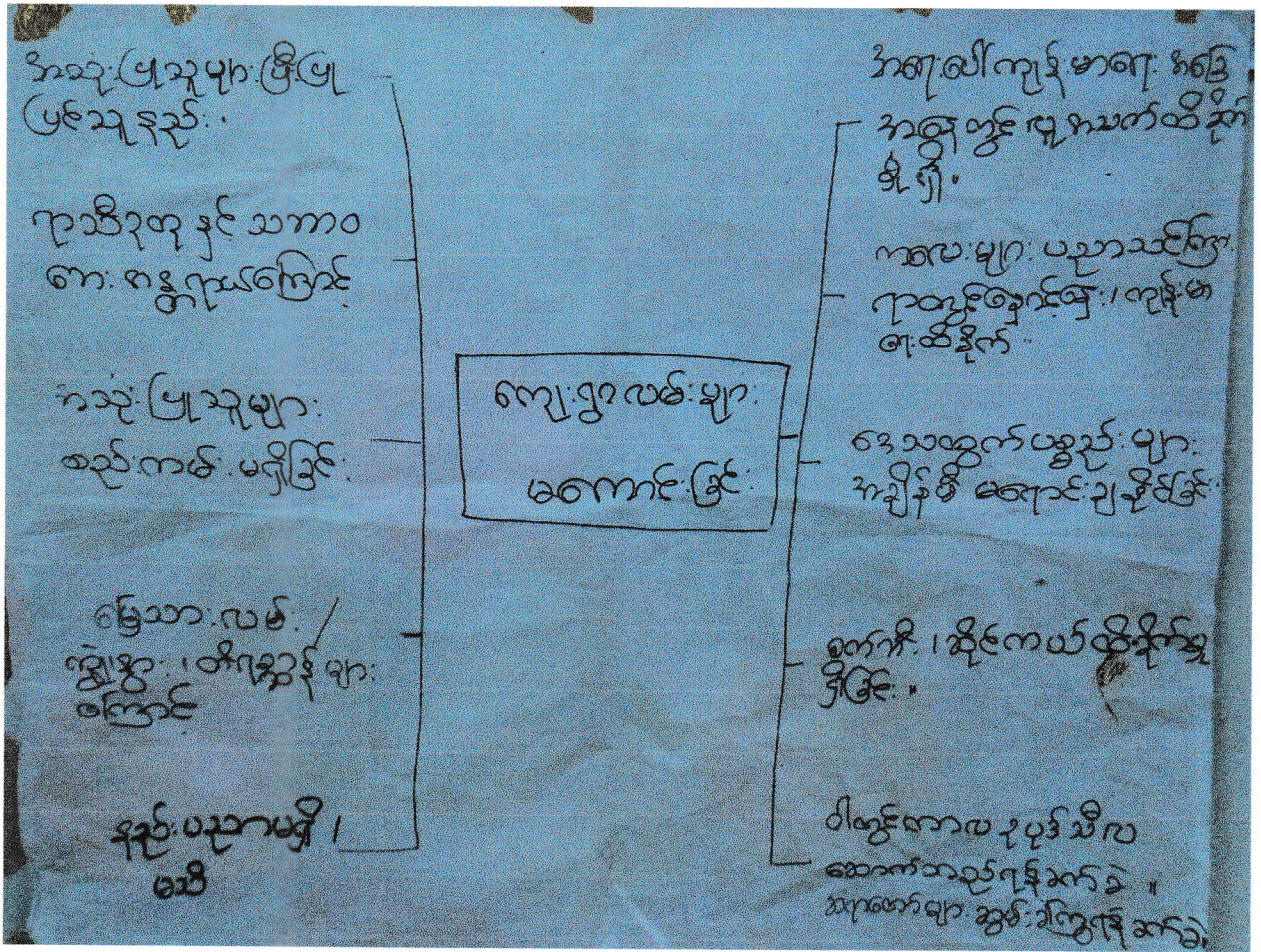 အသုံးပြုသူများပြီးပြု
ပြင်သူနည်း။
ရာသီဥတုနှင့်သဘာဝ
ဘေးအန္တရာယ်ကြောင့်
အသုံးပြုသူများ
စည်းကမ်းမရှိခြင်း
မြေသားလမ်း
ကျွဲ၊နွား၊တိရစ္ဆာန်များ
ကြောင့်
နည်းပညာမရှိ၊
မသိ
ကျေးရွာလမ်းများ
မကောင်းခြင်း
အရေးပေါ်ကျန်းမာရေး အခြေ
အနေတွင်လူ့အသက်ထိခိုက်
မှုရှိ။
ကလေးများပညာသင်ကြား
ရာတွင်နှောင့်နှေး၊ကျန်းမာ
ရေးထိခိုက်
ဒေသထွက်ပစ္စည်းများ
အချိန်မီမရောင်းချနိုင်ခြင်း
စက်ဘီး၊ဆိုင်ကယ်ထိခိုက်မှု
ရှိခြင်း။
ဝါတွင်းကာလဥပုဒ်သီလ
ဆောက်တည်ရန်ခက်ခဲ။
ဆရာတော်များဆွမ်းခံကြွရန်ခက်ခဲ